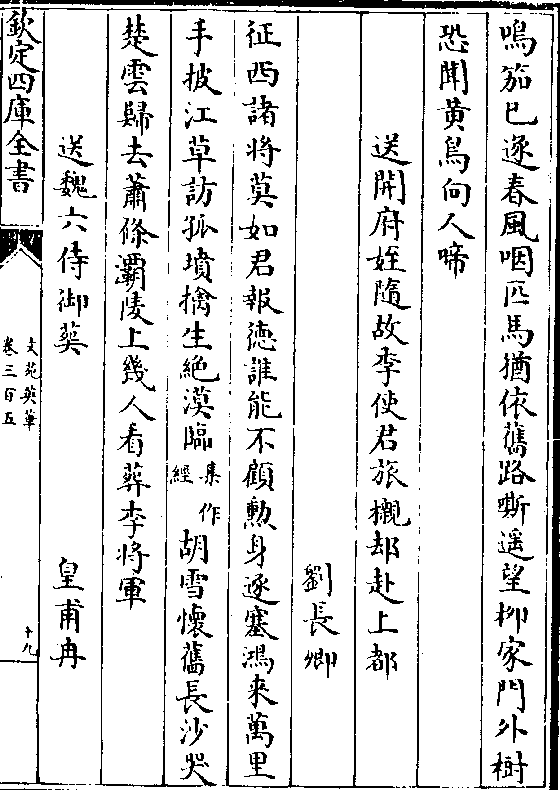 鳴笳已逐春風咽匹馬猶依舊路嘶遥望栁家門外樹
恐聞黄鳥向人啼
送開府姪隨故李使君旅櫬却赴上都
劉長卿
征西諸將莫如君報徳誰能不顧勲身逐塞鴻來萬里
手披江草訪孤墳擒生絶漠臨集作經胡雪懷舊長沙哭
楚雲歸去蕭條灞陵上幾人看葬李將軍
送魏六侍御葬
皇甫冉
欽定四庫全書
文苑英華
卷三百五
十九